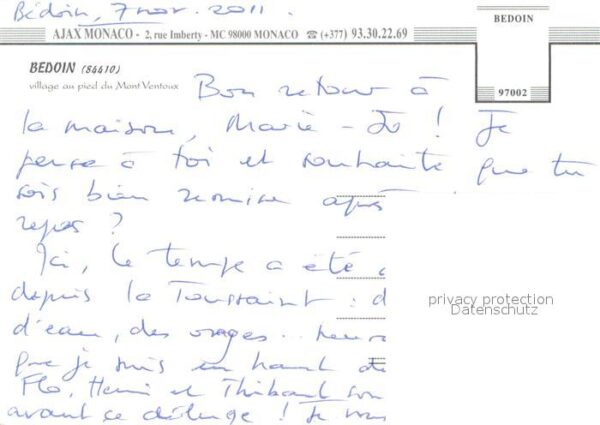 Bédoin, 7 nov. 2011.
AJAX MONACO - 2, rue Imberty - MC 98000 MONACO ☎ (+377) 93.30.22.69
BEDOIN
97002
BEDOIN (84410)
village au pied du Mont Ventoux
Bon retour à
la maison, Marie-Jo ! Je
pense à toi et souhaite que tu
sois bien remise après
repos ?
Ici, le temps a été
depuis la Toussaint : d
d'eau, des orages.. heure
que je suis en haut de
Flo, Henri et Thibaut son
avant ce déluge ! Je vous
privacy protection
Datenschutz